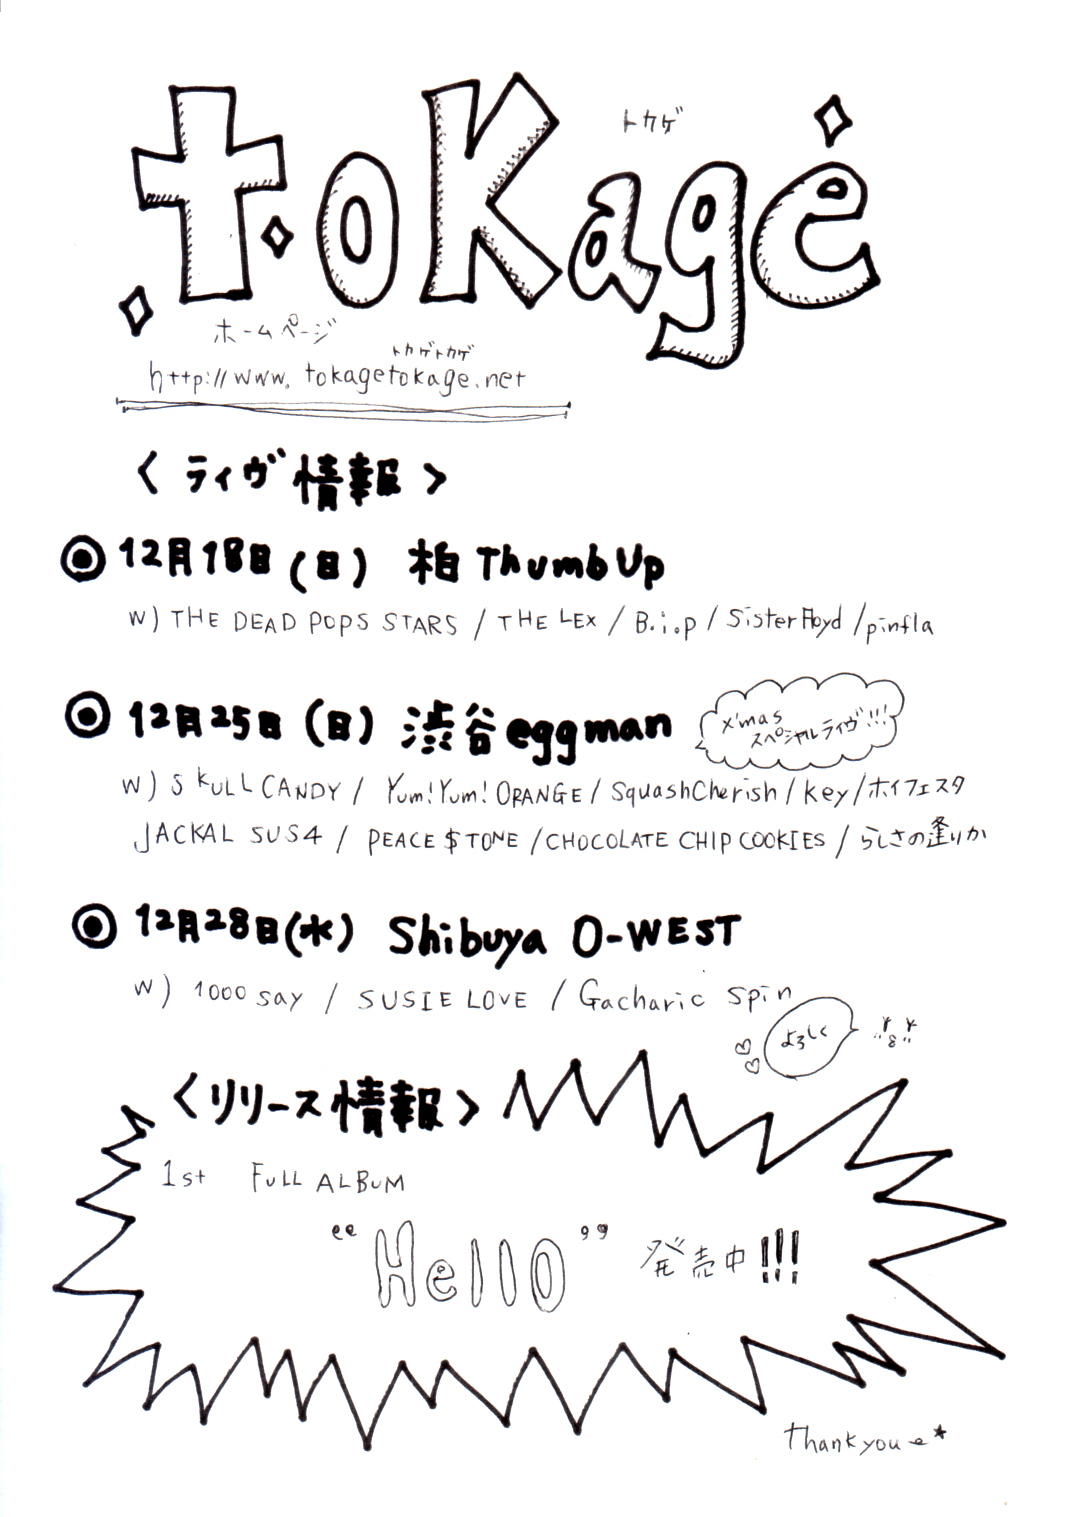 トカゲ
toKage
ホームページ
トカゲトカゲ
http://www.tokagetokage.net
〈ライヴ情報〉
◎12月18日(日) 柏ThumbUp
w) THE DEAD POPS STARS / THE LEX / B.i.p / SisterFloyd / pinfla
◎12月25日(日) 渋谷eggman
X'mas
スペシャルライヴ!!!
w) SKULL CANDY / Yum!Yum!ORANGE / SquashCherish / Key / ホイフェスタ
JACKAL SUS4 / PEACE $TONE / CHOCOLATE CHIP COOKIES / らしさの蓬りか
◎12月28日(水) Shibuya O-WEST
w) 1000say / SUSIE LOVE / Gacharic Spin
よろしく
〈リリース情報〉
1st FULL ALBUM
“Hello” 発売中!!!
Thank you